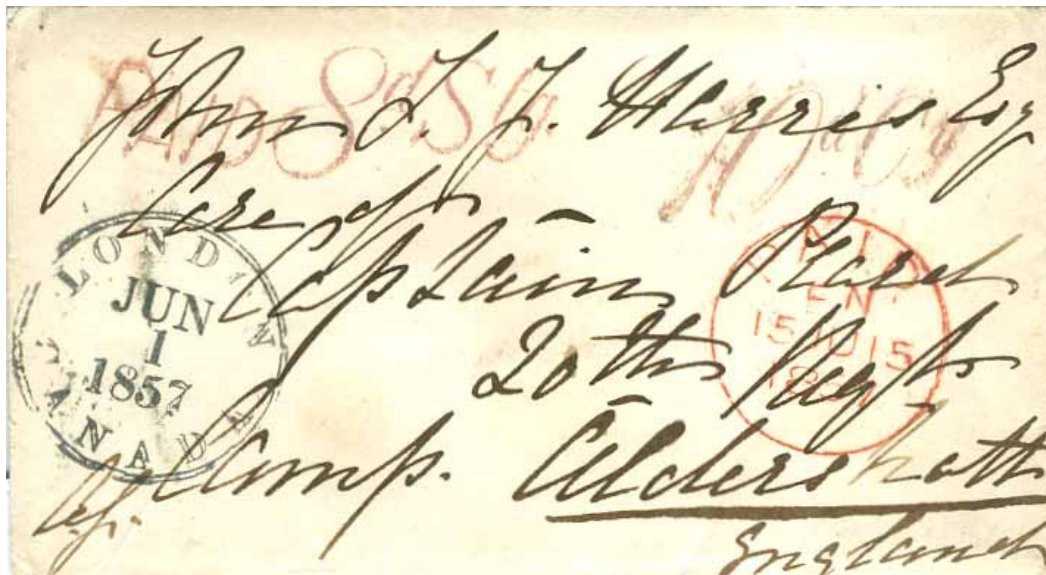 PAID 8d Stg
John L. J. Harris Esq
Care of
Captain
20th Regt
Camp. Aldershott
England
LONDON
JUN
1
1857
CANADA
PAID
EN
15 JU 15